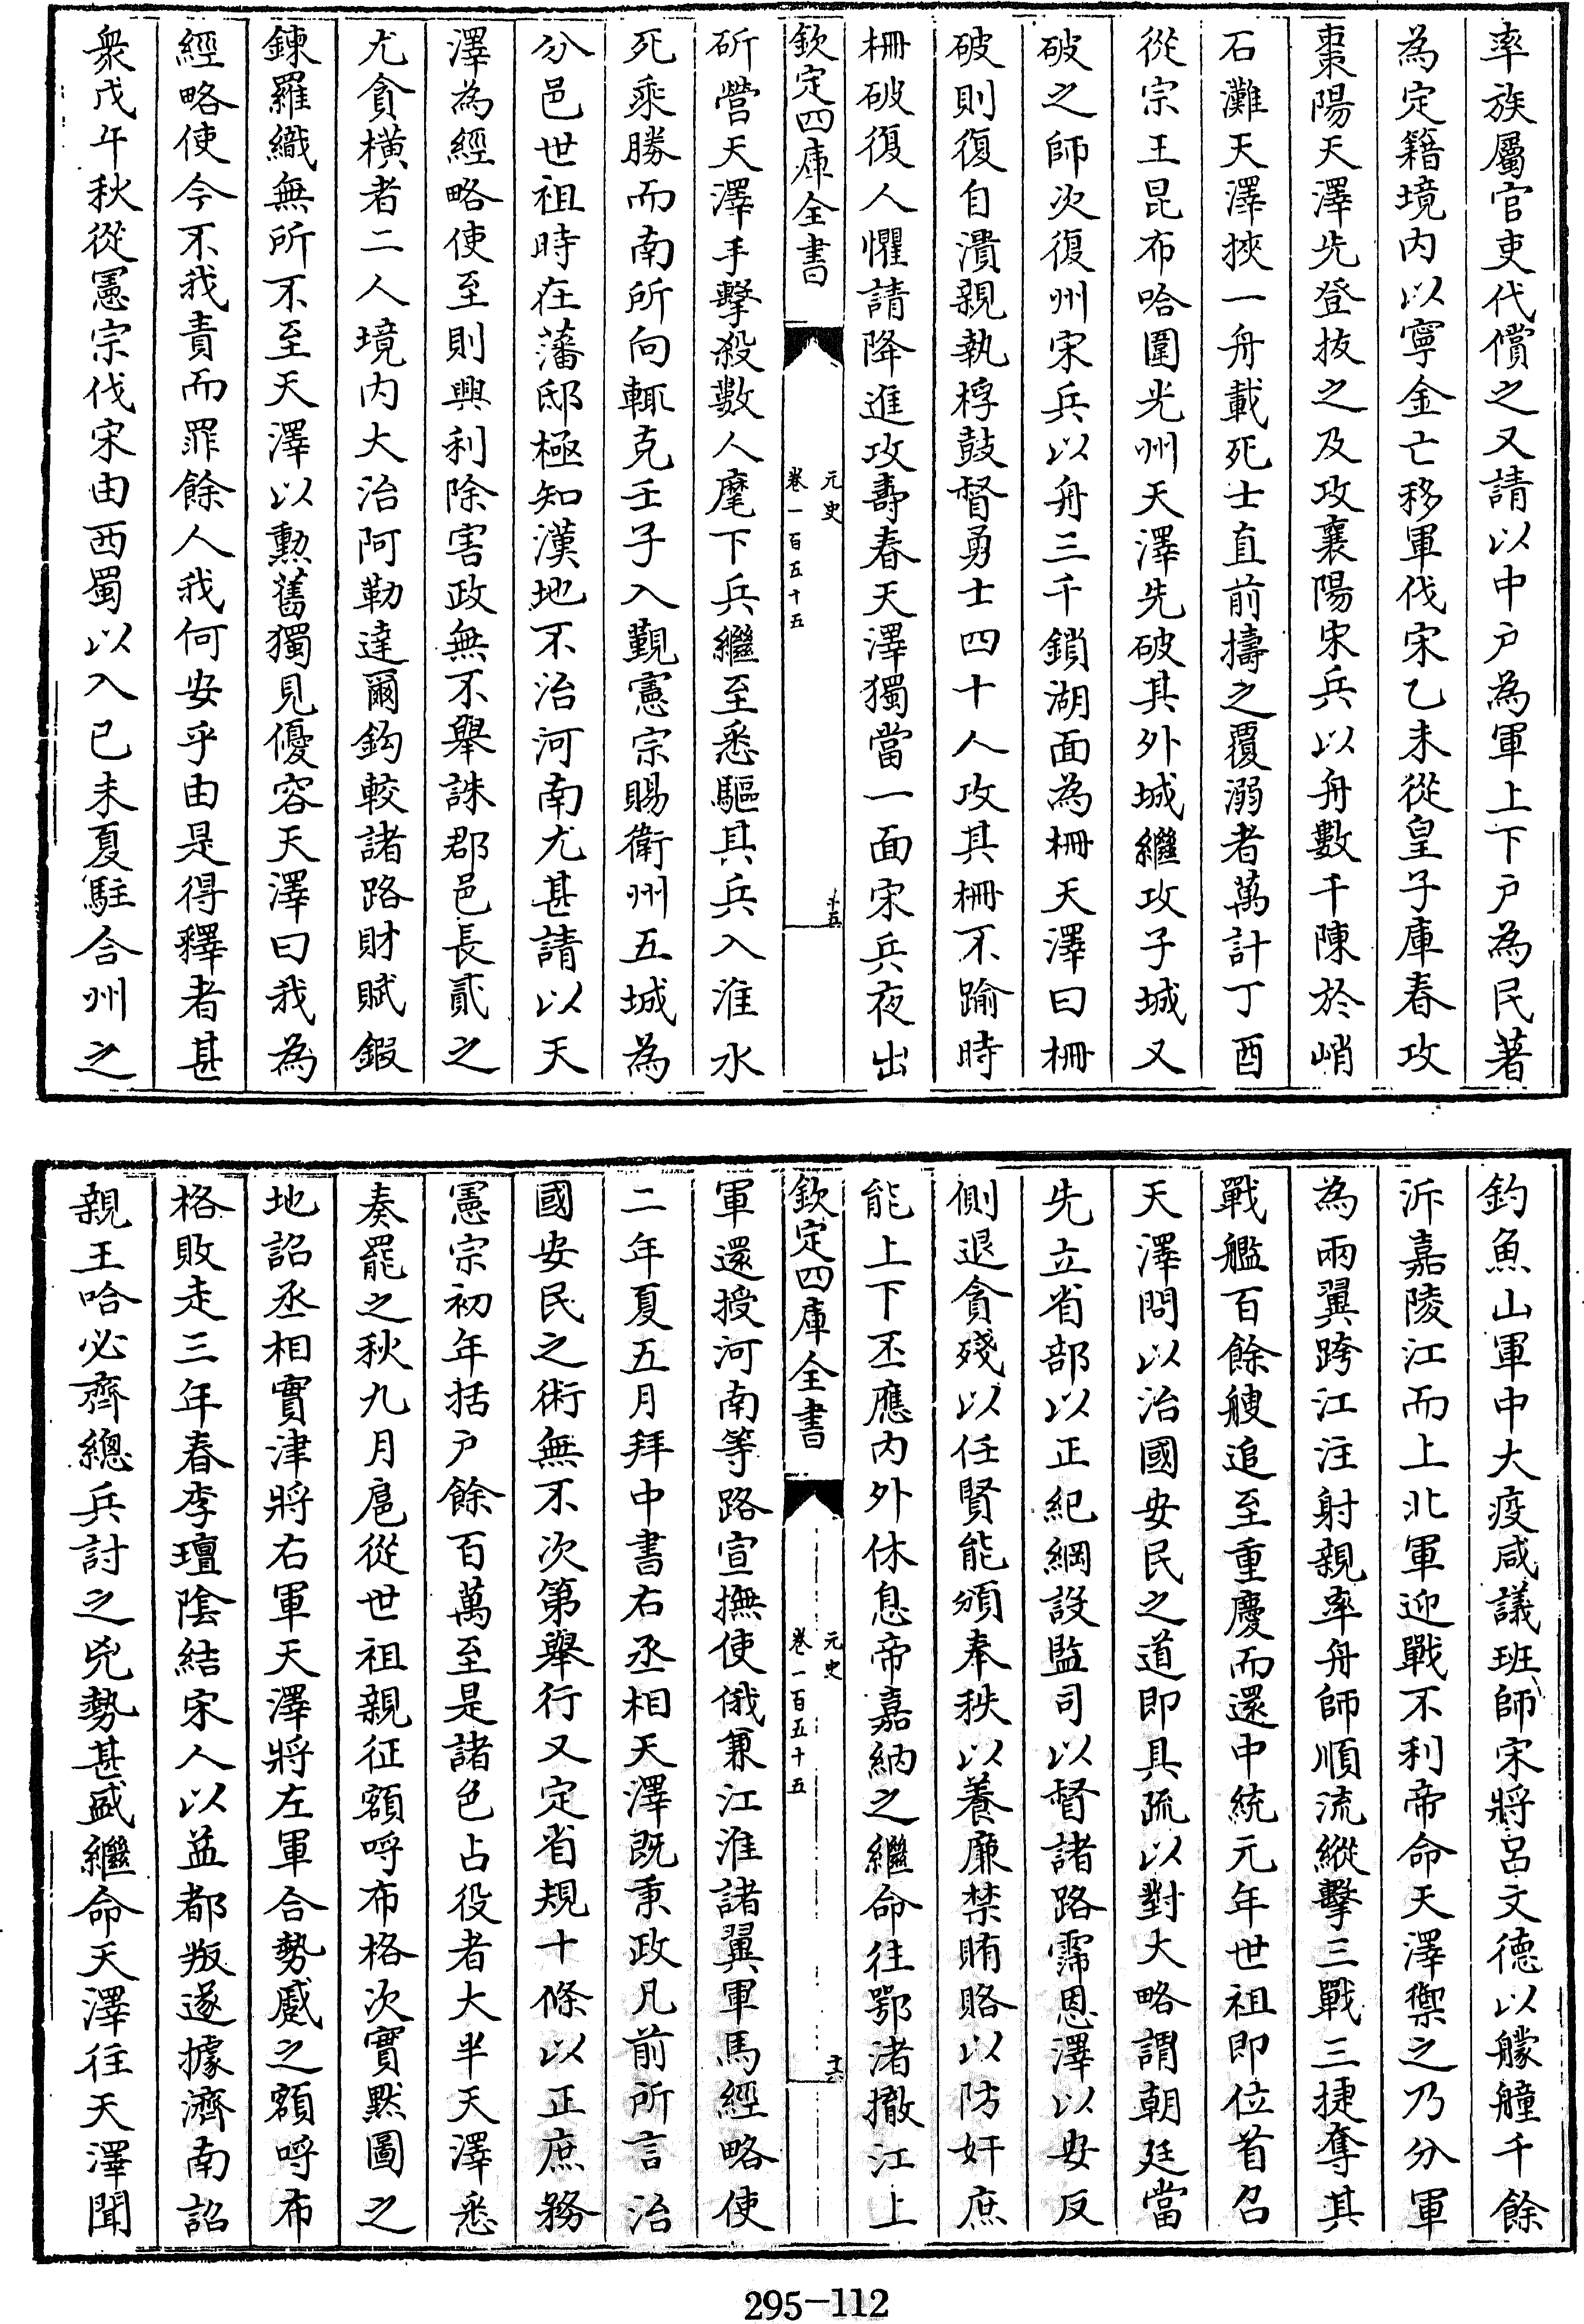 率族屬官吏代償之又請以中户為軍上下户為民著
為定籍境内以寧金亡移軍伐宋乙未從皇子庫春攻
棗陽天澤先登拔之及攻襄陽宋兵以舟數千陳於峭
石灘天澤挾一舟載死士直前擣之覆溺者萬計丁酉
從宗王昆布哈圍光州天澤先破其外城繼攻子城又
破之師次復州宋兵以舟三千鎖湖面為柵天澤曰柵
破則復自潰親執桴鼓督勇士四十人攻其柵不踰時
柵破復人懼請降進攻壽春天澤獨當一面宋兵夜出
欽定四庫全書
元史
卷一百五十五
十五
斫營天澤手擊殺數人麾下兵繼至悉驅其兵入淮水
死乘勝而南所向輒克壬子入覲憲宗賜衛州五城為
分邑世祖時在藩邸極知漢地不治河南尤甚請以天
澤為經略使至則興利除害政無不舉誅郡邑長貳之
尤貪横者二人境内大治阿勒達爾鈎較諸路財賦鍜
鍊羅織無所不至天澤以勲舊獨見優容天澤曰我為
經略使今不我責而罪餘人我何安乎由是得釋者甚
衆戊午秋從憲宗伐宋由西蜀以入己未夏駐合州之
釣魚山軍中大疫咸議班師宋將吕文德以艨艟千餘
泝嘉陵江而上北軍迎戰不利帝命天澤禦之乃分軍
為兩翼跨江注射親率舟師順流縱擊三戰三捷奪其
戰艦百餘艘追至重慶而還中統元年世祖即位首召
天澤問以治國安民之道即具疏以對大略謂朝廷當
先立省部以正紀綱設監司以督諸路霈恩澤以安反
側退貪殘以任賢能頒奉秩以養廉禁賄賂以防奸庶
能上下丕應内外休息帝嘉納之繼命往鄂渚撤江上
欽定四庫全書
元史
卷一百五十五
十六
軍還授河南等路宣撫使俄兼江淮諸翼軍馬經略使
二年夏五月拜中書右丞相天澤既秉政凡前所言治
國安民之術無不次第舉行又定省規十條以正庶務
憲宗初年括户餘百萬至是諸色占役者大半天澤悉
奏罷之秋九月扈從世祖親征額呼布格次實黙圖之
地詔丞相實津將右軍天澤將左軍合勢蹙之額呼布
格敗走三年春李璮陰結宋人以益都叛遂據濟南詔
親王哈必齊總兵討之兇勢甚盛繼命天澤往天澤聞
295-112